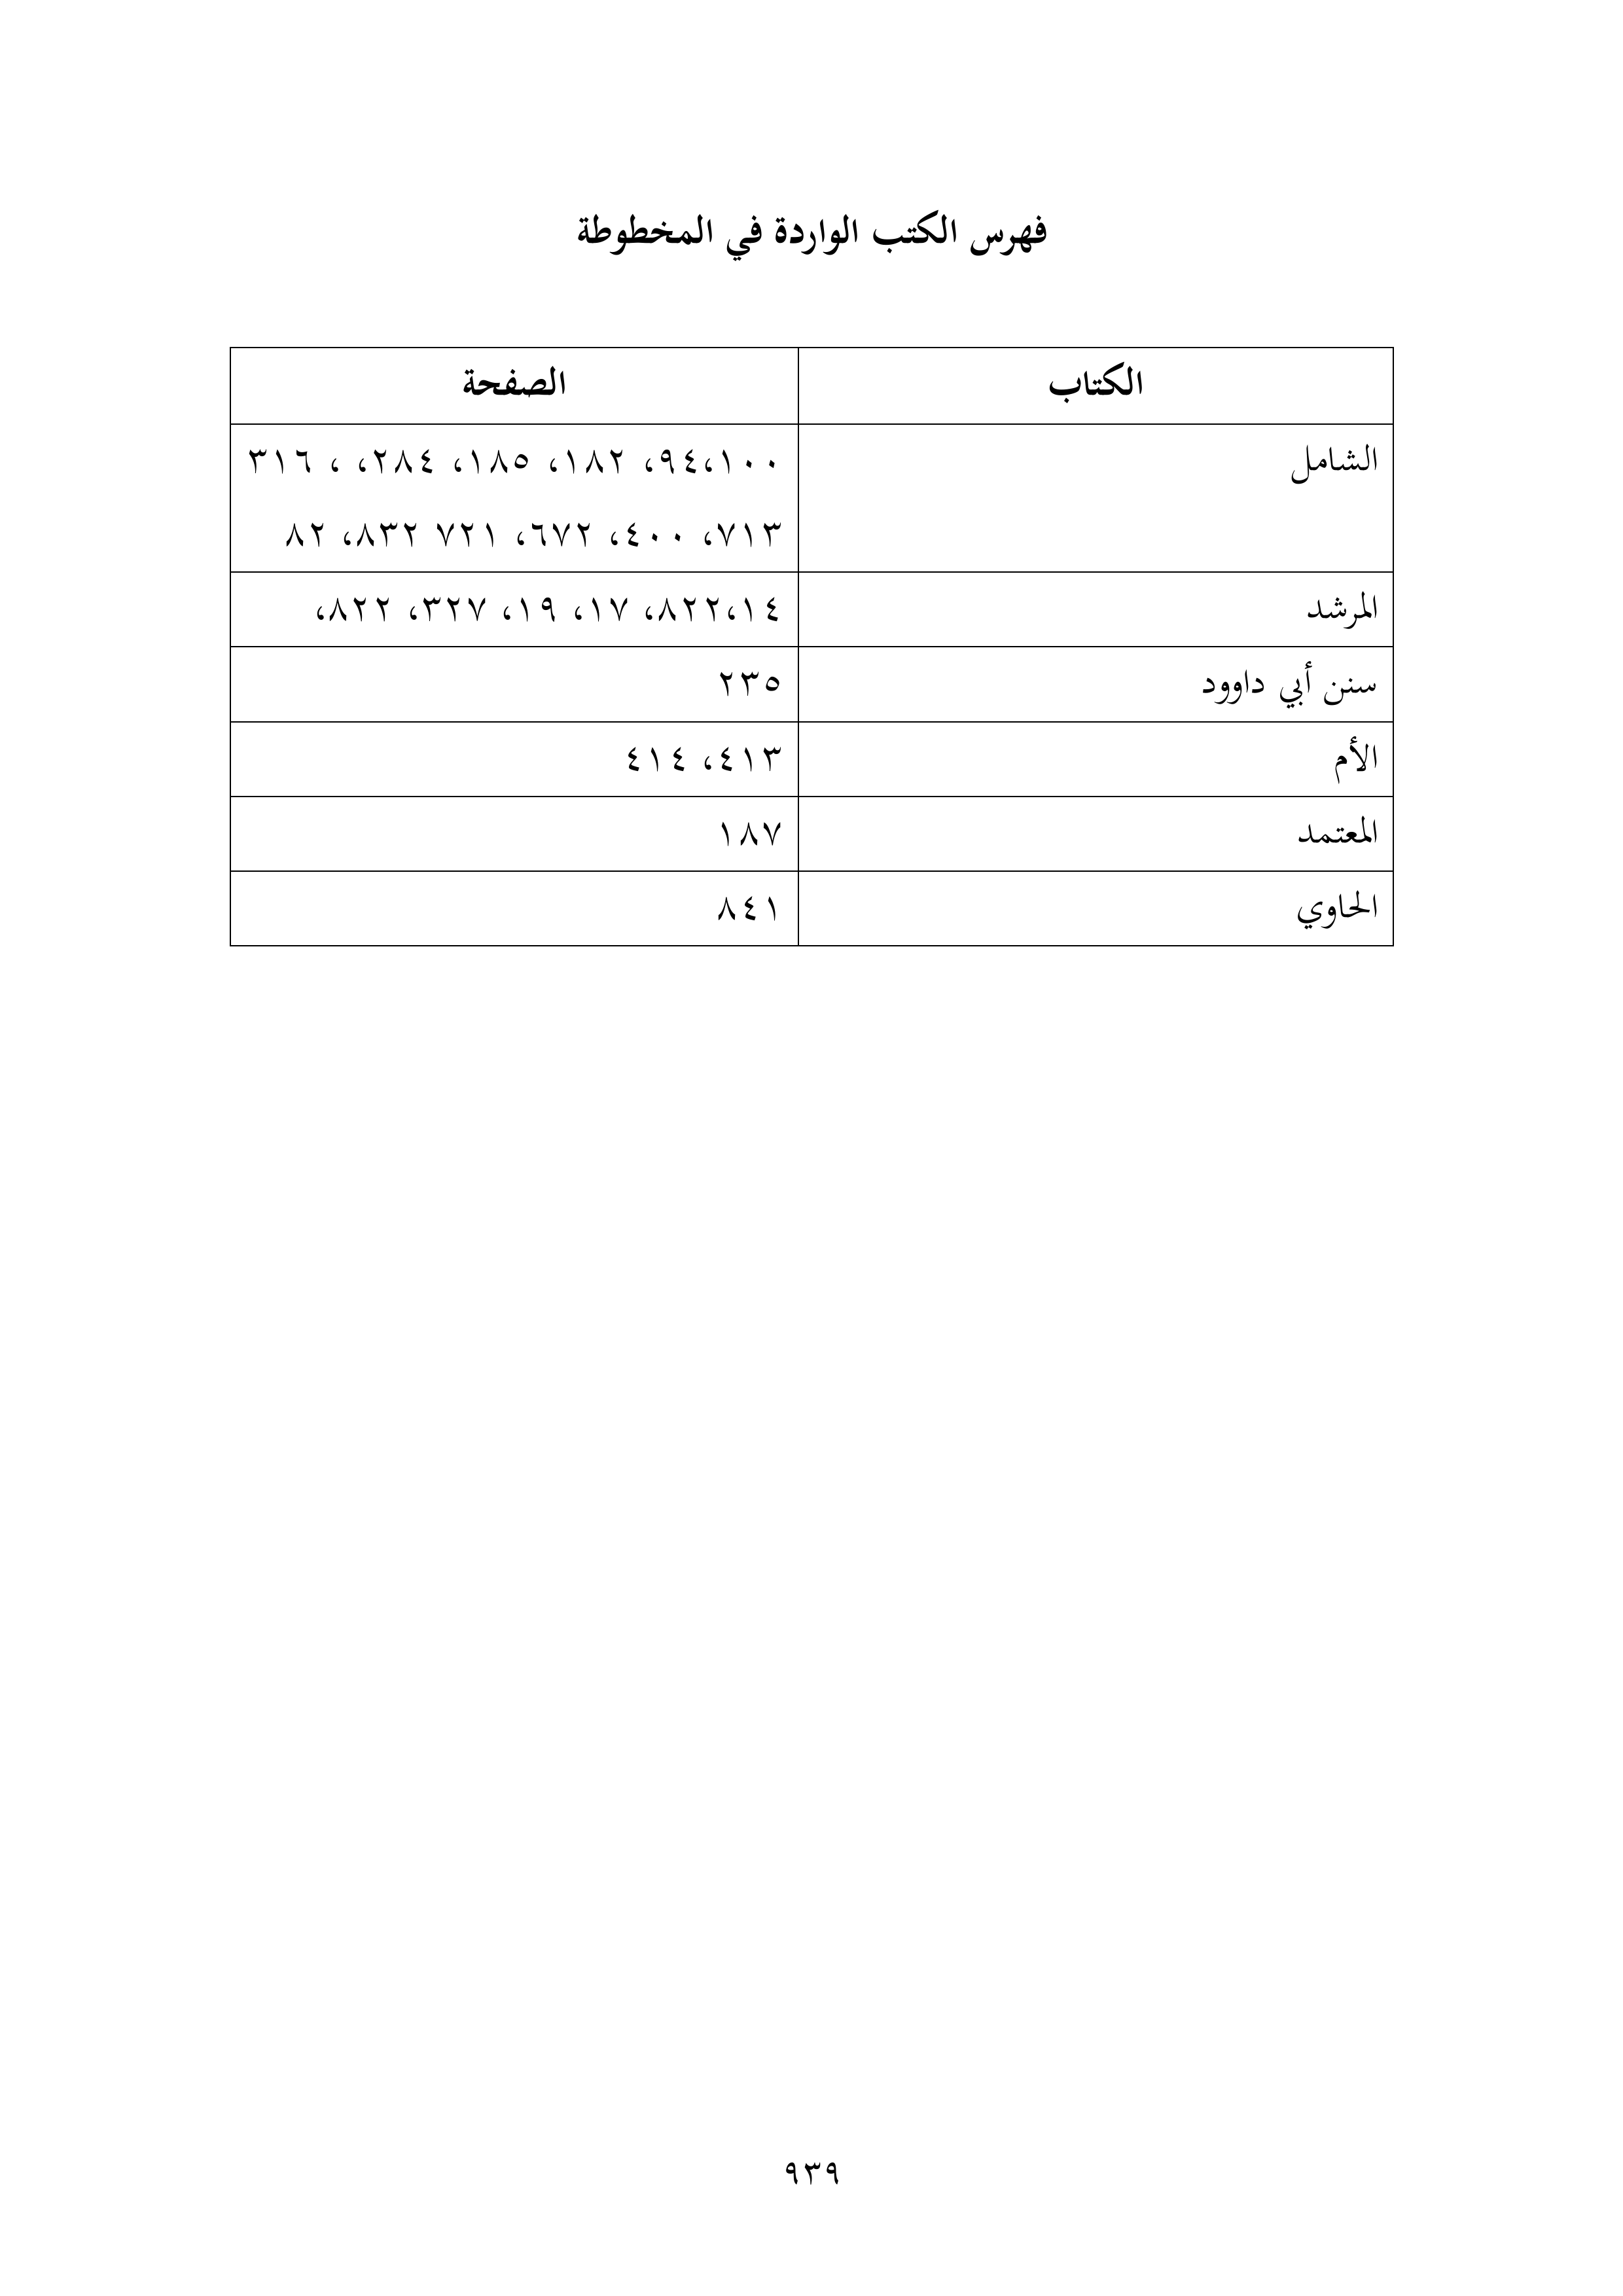 فهرس الكتب الواردة في المخطوطة
الكتاب الصفحة
الشامل ٩٤،١٠٠، ١٨٢، ١٨٥، ٢٨٤، ، ٣١٦
٧١٣، ٤٠٠، ٦٧٢، ٧٢١ ٨٣٢، ٨٢
المرشد ٨٢٢،١٤، ١٧، ١٩، ٣٢٧، ٨٢٢،
سنن أبي داوود ٢٣٥
الأم ٤١٣، ٤١٤
المعتمد ١٨٧
الحاوي ٨٤١
٩٣٩